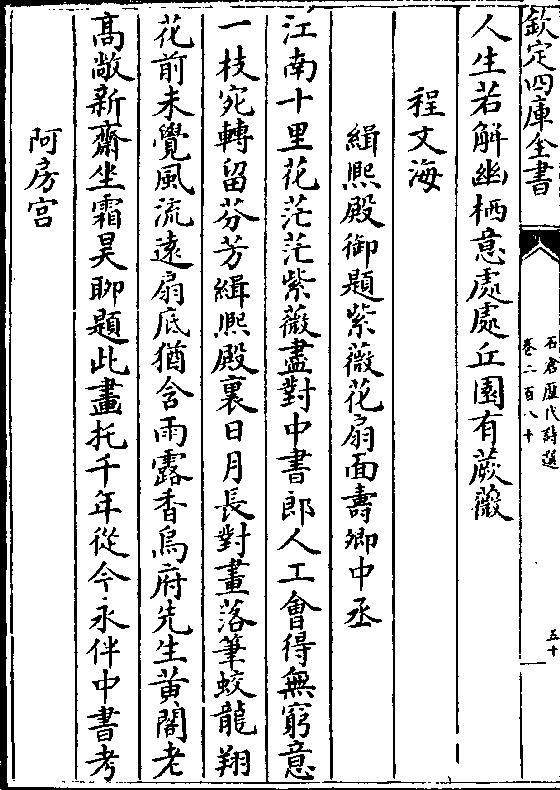 欽定四庫全書
石倉歷代詩選
卷二百八十
五十
人生若解幽栖意處處丘園有蕨薇
程文海
緝熈殿御題紫薇花扇面壽卿中丞
江南十里花茫茫紫薇盡對中書郎人工會得無窮意
一枝宛轉留芬芳緝熈殿裏日月長對畫落筆蛟龍翔
花前未覺風流遠扇底猶含雨露香烏府先生黄閣老
髙敞新齋坐霜昊聊題此畫托千年從今永伴中書考
阿房宫